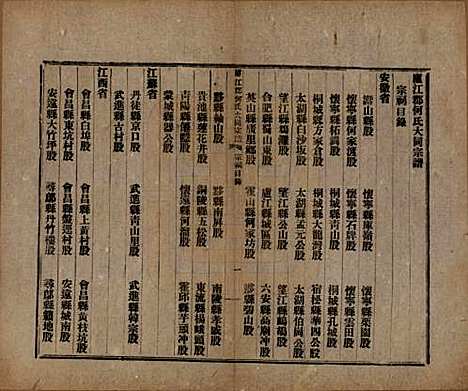 廬江郡何氏大同宗譜
宗祠目錄
安徽省
潛山縣股 懷寧縣東嶺股 懷寧縣栗園股
懷寧縣何家溪股 懷寧縣石坪股 懷寧縣雲田股
桐城縣柘崗股 桐城縣青山股 桐城縣孔城股
桐城縣方家倉股 桐城縣大龍灣股 宿松縣華四公股
太湖縣白沙坂股 太湖縣孟元公股 太湖縣伯岡公股
望江縣鴉灘股 望江縣公山股 望江縣鴨鳴股
合肥縣獨山東股 廬江縣城區股 六安縣高廟沖股
英山縣廣里鄉股 霍山縣何家坊股
廬江郡何氏大同宗譜 宗祠目錄 一
黟縣碧山股
黟縣軸山股 黟縣南屏股 南陵縣孝感股
貴池縣蓮花井股 銅陵縣五松股 東流縣揚峨頭股
青陽縣股 懷遠縣河溜股 霍邱縣芋頭沖股
蒙城縣器公股
江蘇省
丹徒縣京口股 武進縣青山里股 武進縣韓宗股
武進縣古村股
江西省
會昌縣白埠股 會昌縣上黃村股 會昌縣黃枝坑股
會昌縣東坑村股 會昌縣盤運村股 安遠縣城南股
安遠縣大竹坪股 尋鄔縣丹竹樓股 尋鄔縣賴地股